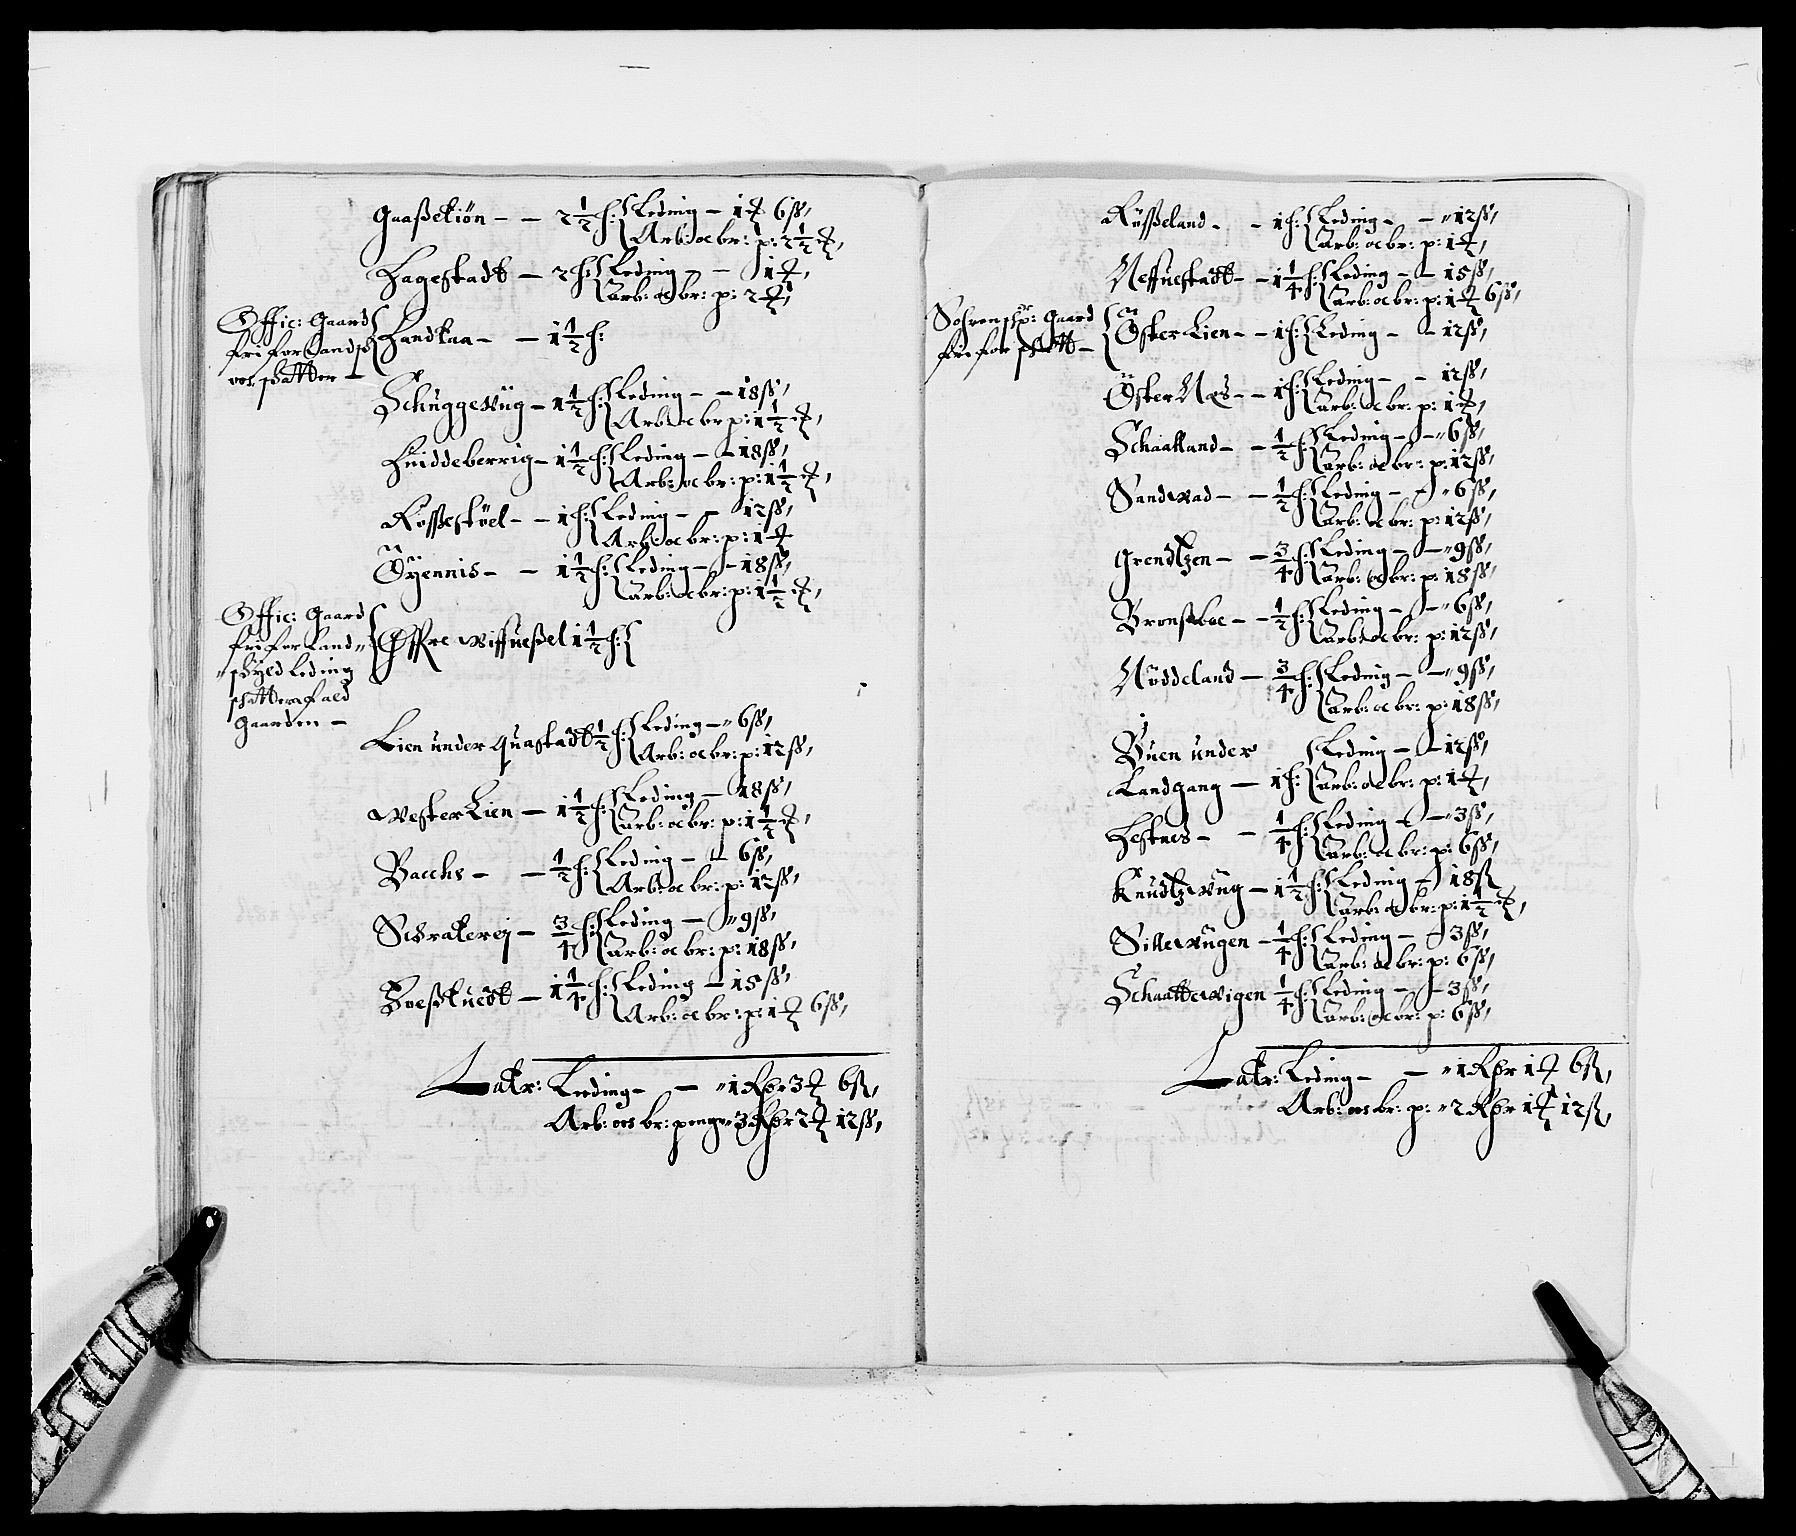 Gaaßekiön - - 2 1/2 h: Leding - 1 ꝶ 6 ß,
Arb: oc br: p: 2 1/2 ꝶ,
Hagestadt - 2 h: Leding - - 1 ꝶ,
arb: oc br: p: 2 ꝶ,
Offic: Gaard
fri for Landsch
oc schatter -
Handkaa - - 1 1/2 h:
Schuggevug - 1 1/2 h: Leding - - 18 ß,
Arb: oc br: p: 1 1/2 ꝶ,
Huiddeberrig - 1 1/2 h: Leding - - 18 ß,
Arb: oc br: p: 1 1/2 ꝶ,
Roßestöel - - 1 h: Leding - - 12 ß,
Arb: oc br: p: 1 ꝶ
Öyennis - - 1 1/2 h: Leding - - 18 ß,
arb: oc br: p: 1 1/2 ꝶ,
Offic: Gaard
fri for Land-
schyld leding
schatter af
Gaarden -
Øffre wiffueßel 1 1/2 h:
Lien under quastadt 1/2 h: Leding - 6 ß,
Arb: oc br: p: 12 ß,
Wester Lien - 1 1/2 h: Leding - 18 ß,
arb: oc br: p: 1 1/2 ꝶ,
Bacche - - 1/2 h: Leding - - 6 ß,
Arb: oc br: p: 12 ß,
Schrakerej - 3/4 h: Leding - 9 ß,
arb: oc br: p: 18 ß,
- 1 1/4 h: Leding - 15 ß,
Arb: oc br: p: 1 ꝶ 6 ß,
Latr: Leding - - 1 Rdr 3 ꝶ 6 ß,
Arb: oc br: penge 3 Rdr 2 ꝶ 12 ß,
Rüßeland - - 1 h: Leding - - 12 ß,
arb: oc br: p: 1 ꝶ,
Neffuestadt - - 1 1/4 h: Leding - - 15 ß,
arb: oc br: p: 1 ꝶ 6 ß,
Sohrenskr: Gaard
fri for schatt -
Öster Lien - - 1 h: Leding - - 12 ß,
Öster Næs - - 1 h: Leding - - 12 ß,
arb: oc br: p: 1 ꝶ,
Schaalland - - 1/2 h: Leding - - 6 ß,
arb: oc br: p: 12 ß,
Sandwad - - 1/2 h: Leding - - 6 ß,
arb: oc br: p: 12 ß,
Grendtzen - - 3/4 h: Leding - - 9 ß,
arb: oc br: p: 18 ß,
Bronsboe - - 1/2 h: Leding - - 6 ß,
arb: oc br: p: 12 ß,
Nöddeland - 3/4 h: Leding - - 9 ß,
arb: oc br: p: 18 ß,
Buen under Leding - - 12 ß,
Landgang - 1 h: arb: oc br: p: 1 ꝶ,
Hestnes - - 1/4 h: Leding - - 3 ß,
arb: oc br: p: 6 ß,
Knudtzwug - 1 1/2 h: Leding - 18 ß
arb: oc br: p: 1 1/2 ꝶ,
Sillewugen - 1/4 h: Leding - - 3 ß,
arb: oc br: p: 6 ß,
Schaattewigen 1/4 h: Leding - - 3 ß,
arb: oc br: p: 6 ß,
Latr: Leding - - 1 Rdr 1 ꝶ 6 ß,
Arb: oc br: p: 2 Rdr 1 ꝶ 12 ß,